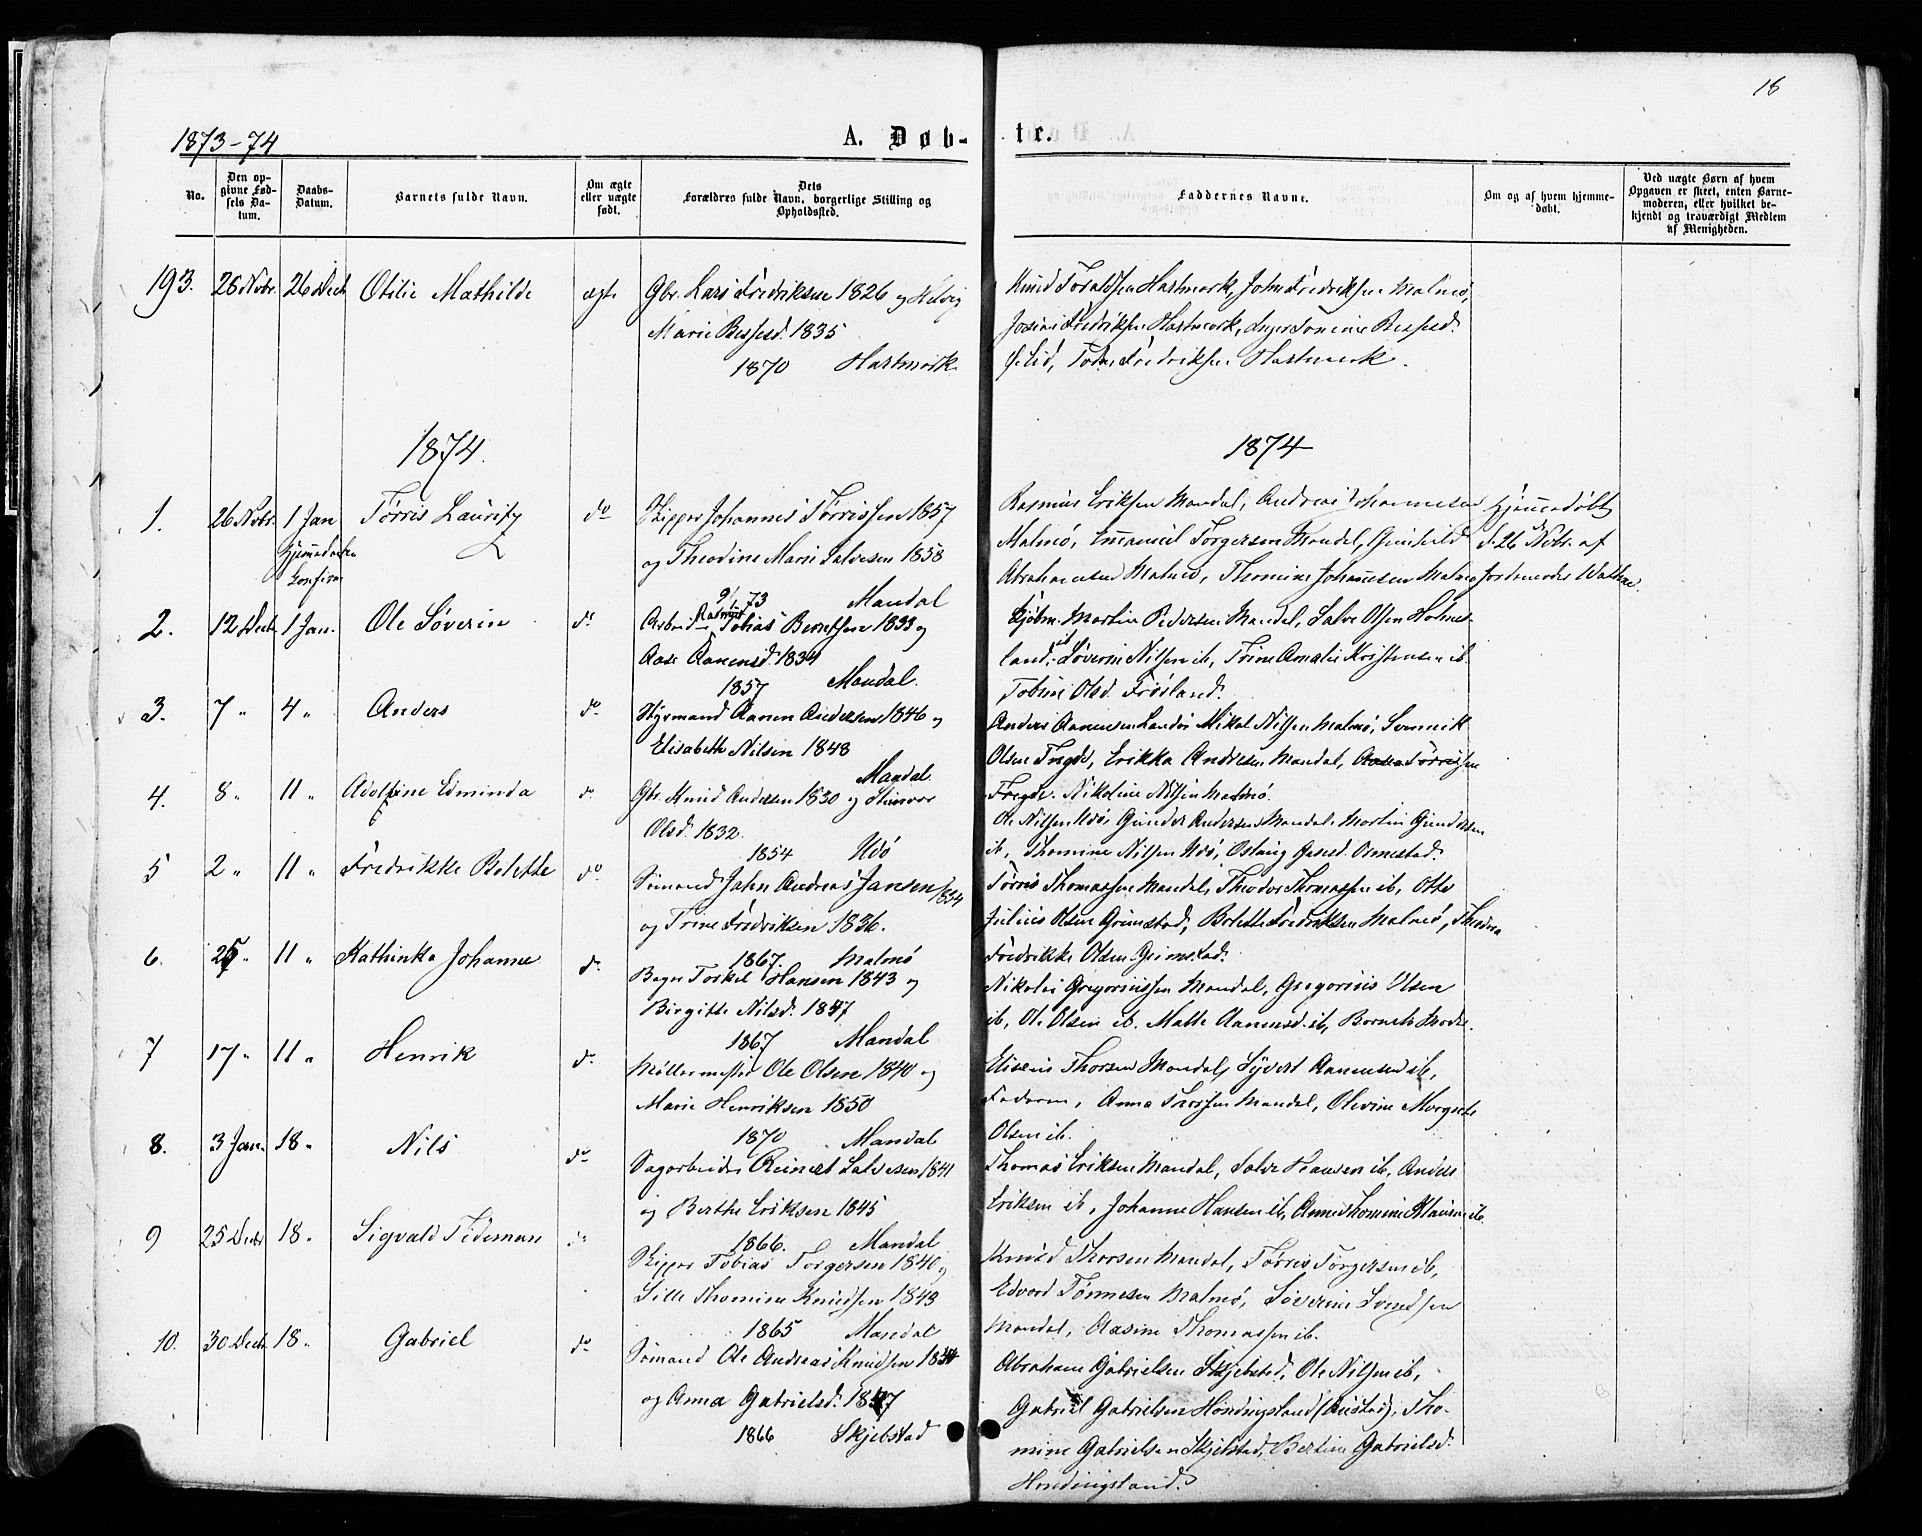 18
1873-74
A. Døb-
te.
No.
Den opgivne Fødsels Datum.
Daabs-Datum.
Barnets fulde Navn.
Om ægte eller uægte født.
Dets Forældres fulde Navn, borgerlige Stilling og Opholdssted.
Faddernes Navne.
Om og af hvem hjemmedøbt.
Ved uægte Børn af hvem Opgaven er skeet, enten Barnemoderen, eller hvilket bekjendt og troværdigt Medlem af Menigheden.
193. 26 Novbr. 26 Decb Otilie Mathilde ægte Gbr. Lars Fredriksen 1826 og Helvig
Marie Bessesd. 1835
1870 Hartmark
Knud Toraldsen Hartmark, John Fredriksen Malmö,
Josine Fredriksen Hartmark, Inger Tomine Bessesd.
Lid, Tobi Fredriksen Hartmark.
1874.
1874
1. 26 Novbr. 1 Jan Tørris Lauritz do Skipper Johannes Tørrissen 1857
Hjemmedaaben
Confirm
og Theodine Marie Salvesen 1858
9/1 73 Mandal
Rasmus Eriksen Mandal, Andreas Johannesen
Malmö, Emanuel Torgersen Mandal, Gunhild
Abrahamsen Malmö, Thomine Johannesen Malmö
Hjemmedøbt
d. 26 Novbr. af
Jordmoder Wathne
2. 12 Decb. 1 Jan. Ole Søverin do Arbeider Rasmus Tobias Berntsen 1833 og
Aase Aanensd. 1834
1857 Mandal.
Kjøbm. Martin Pedersen Mandal, Salve Olsen Holmes-
land, Søverin Nilsen ib, Trine Amalie Kristensen ib.
Tobine Olsd. Frøisland.
3. 7 " 4 " Anders do Styrmand Aanen Andersen 1846 og
Elisabeth Nilsen 1848
Mandal
Anders Aanensen Landø Mikal Nilsen Malmö, Svennik
Olsen Tregde, Erikka Andresen Mandal, Aase Tørrissen
Fregde. Nikoline Nilsen Malmö.
4. 8 " 11 " Adolfine Edminda do Gbr. Knud Andersen 1830 og Stinevor
Olsd. 1832.
1854 Udö
Ole Nilsen Udö, Gunder Andersen Mandal, Martin Gundersen
ib, Thomine Nilsen Udö, Ostaug Aanesd. Ormestad.
5 2 " 11 " Fredrikke Bolette do Sømand John Andreas Jansen 1834
og Trine Fredriksen 1836.
1867. Malmö
Tørris Thomassen Mandal, Theodor Thomassen ib, Otto
Julius Olsen Grimstad, Bolette Fredriksen Malmö, Theodora
Fredrikke Olsen Grimstad.
6. 25 " 11 " Kathinka Johanne do Bager Torkel Hansen 1843 og
Birgitte Nilsd. 1847
1867 Mandal
Nikolai Gregoriussen Mandal, Gregorius Olsen
ib, Ole Olsen ib. Malle Aanensd. ib, Barnets Moder.
7 17 " 11 " Henrik do Møllermester Ole Olsen 1840 og
Marie Henriksen 1850
1870 Mandal
Eliseus Thorsen Mandal, Syvert Aanensen ib,
Faderen, Anna Thorsen Mandal, Olevine Margrete
Olsen ib.
8. 3 Jan. 18 " Nils do Sagarbeider Reinert Salvesen 1841
og Berthe Eriksen 1845
1866. Mandal
Thomas Eriksen Mandal, Salve Hansen ib, Anders
Eriksen ib, Johanne Hansen ib, Anne Thomine Klausen ib.
9 25 Decbr 18 " Sigvald Tideman do Skipper Tobias Torgersen 1840 og
Sille Thomine Knudsen 1843
1865 Mandal
Knud Thorsen Mandal, Tørris Torgersen ib,
Edvard Tønnesen Malmö, Søverine Svendsen
Mandal, Aasine Thomassen ib.
10. 30 Decb. 18 " Gabriel do Sømand Ole Andreas Knudsen 1834
og Anna Gabrielsd. 1847
1866 Skjebstad
Abraham Gabrielsen Skjebstad, Ole Nilsen ib,
Gabriel Gabrielsen Hondingsland (Austad), Tho-
mine Gabrielsen Skjebstad, Bertine Gabrielsd.
Hondingsland.